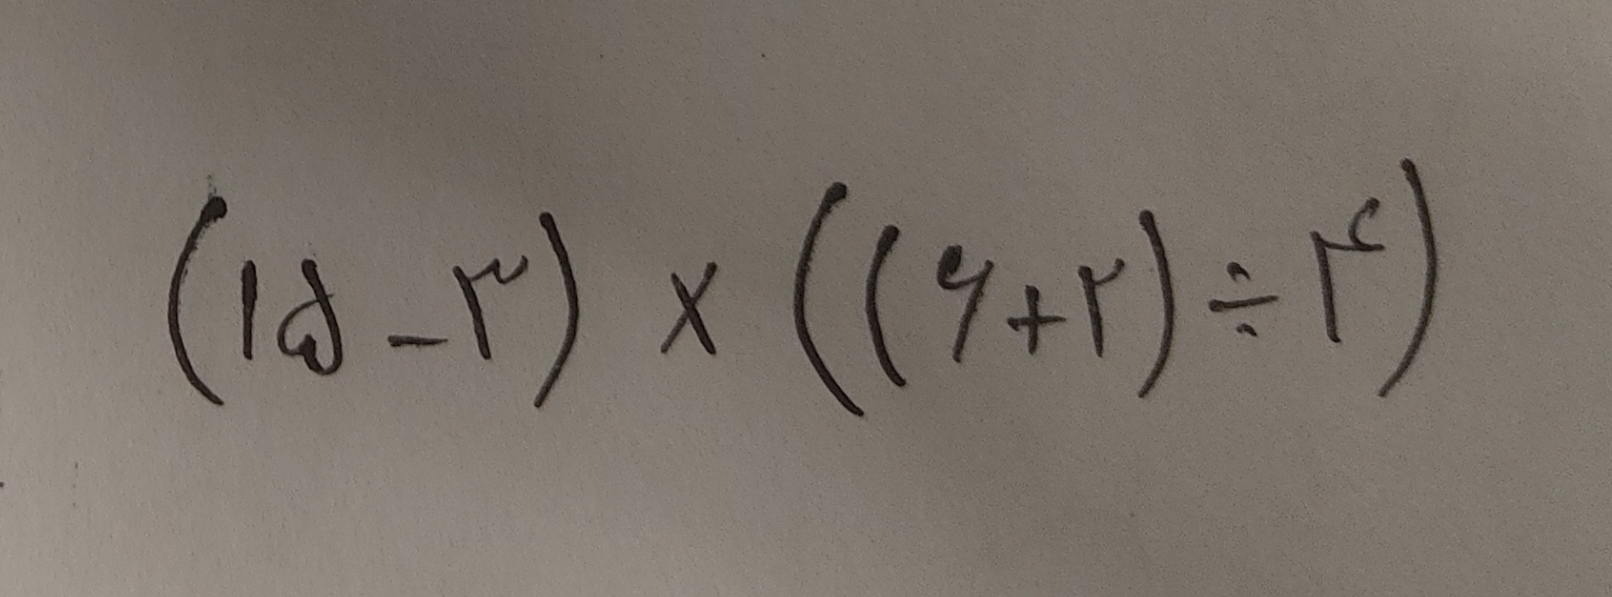 (۱۵-۳) × ((۶+۲) ÷ ۴)